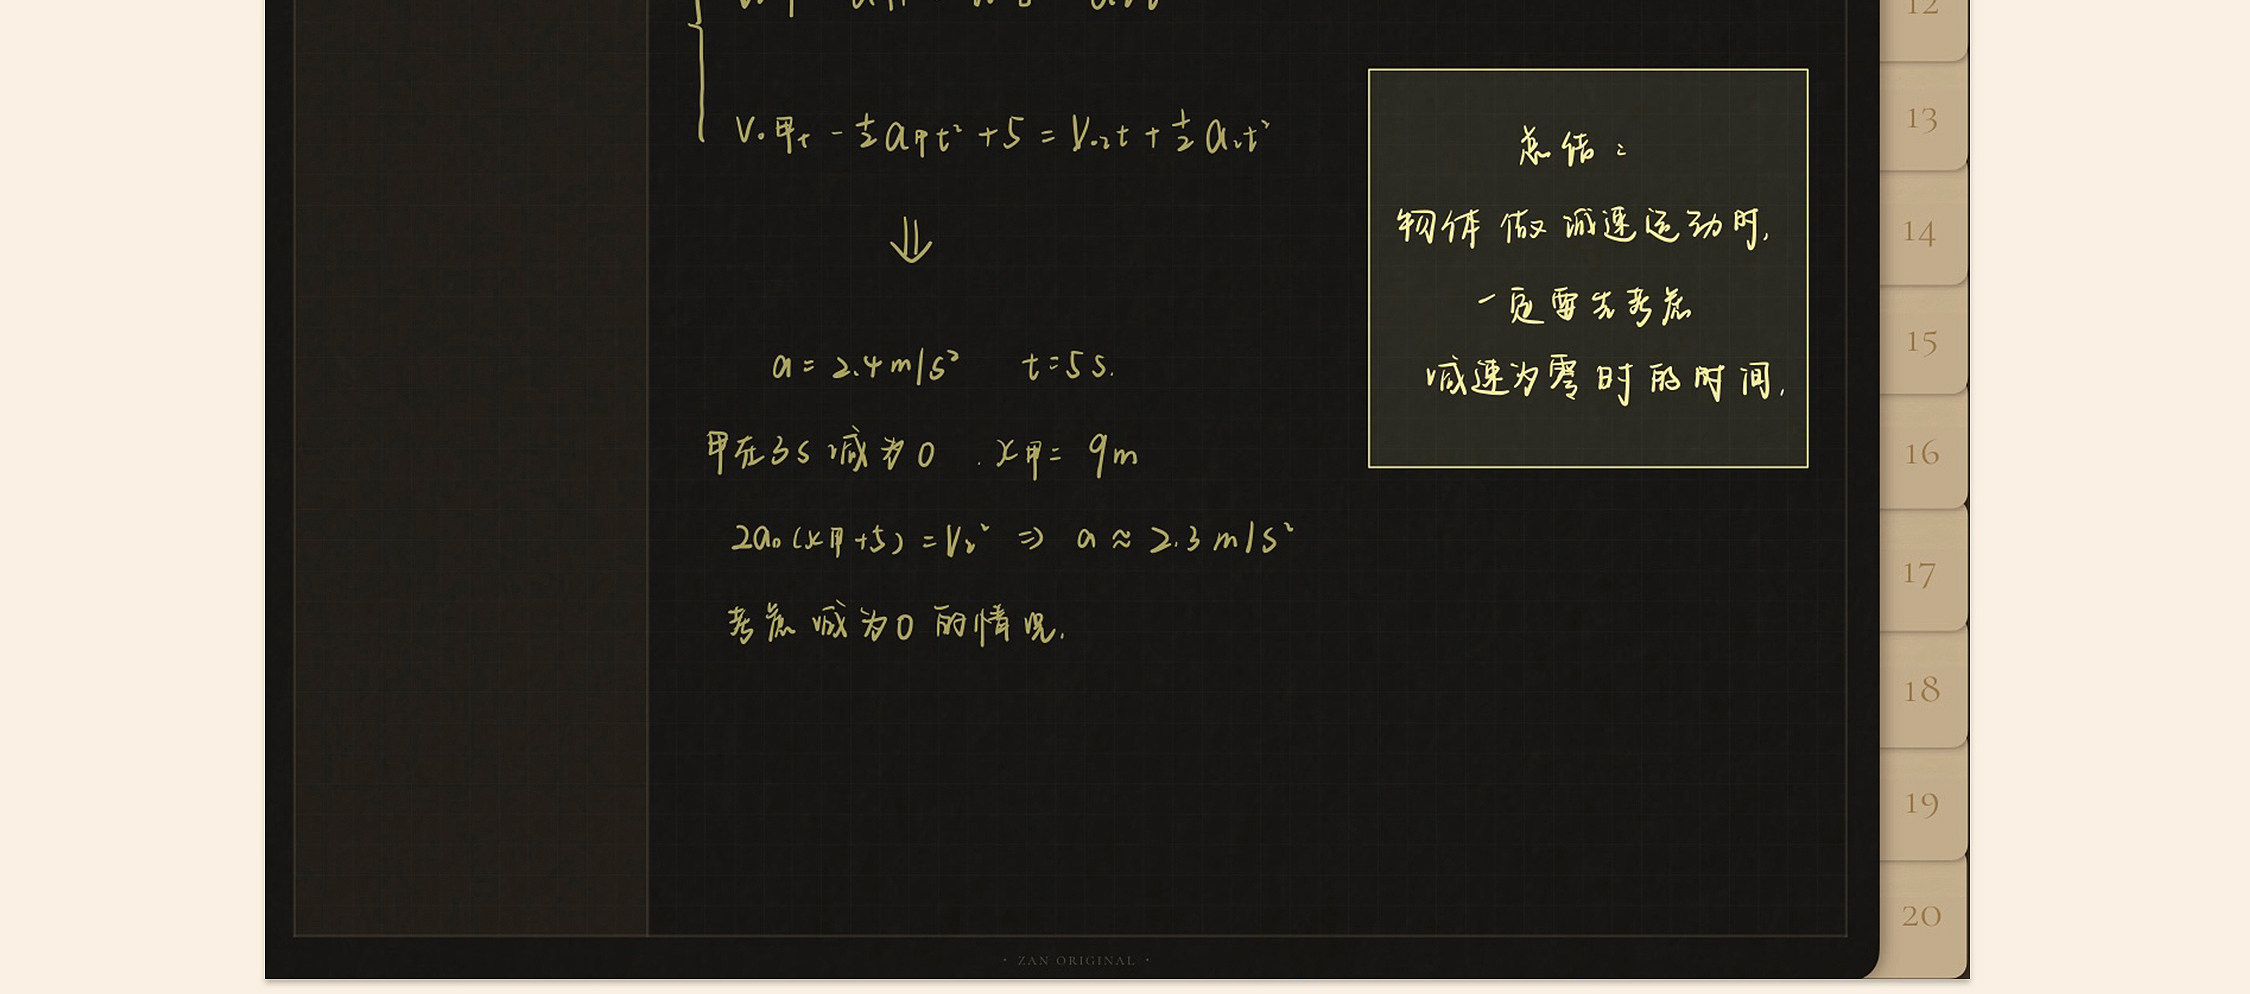 V₀甲t - ½a甲t² + 5 = V₀乙t + ½a乙t²
⇓
a = 2.4m/s² t=5s.
甲在3s减为0 . x甲= 9m
2a₀(x甲+5) = V₂² ⇒ a ≈ 2.3m/s²
考虑减为0的情况.
总结:
物体做减速运动时,
一定要先考虑
减速为零时的时间.
12
13
14
15
16
17
18
19
20
• ZAN ORIGINAL •